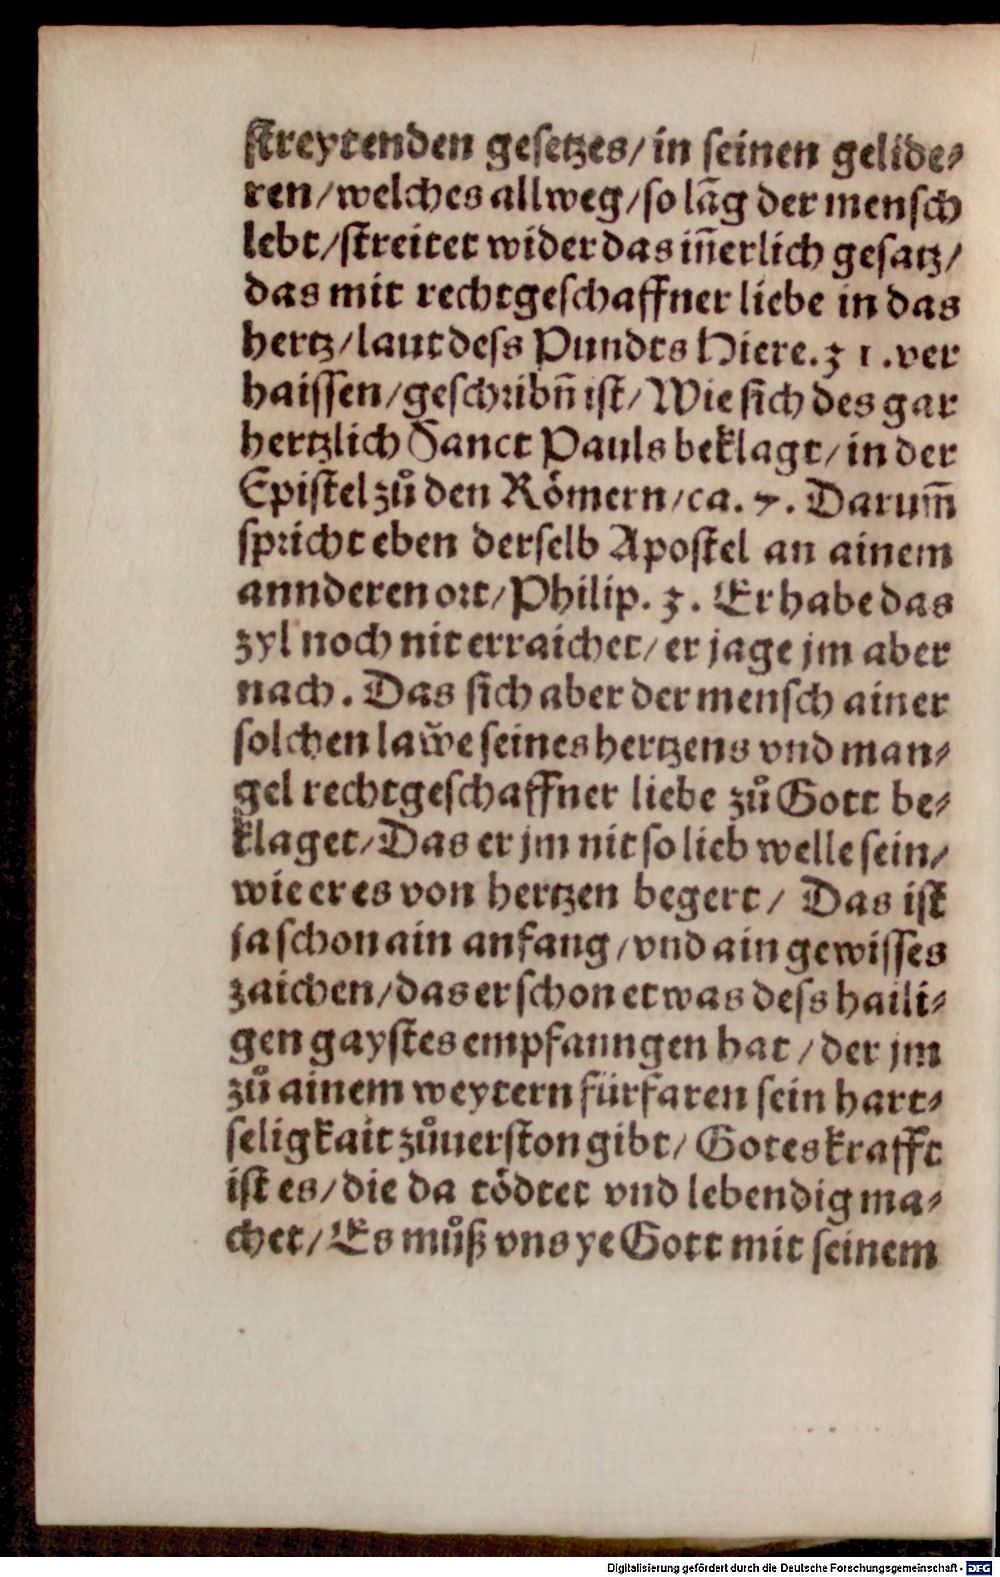 streytenden gesetzes/in seinen gelide-
ren/welches allweg/so lāg der mensch
lebt/streitet wider das iñerlich gesatz/
das mit rechtgeschaffner liebe in das
hertz/laut dess Pundts Hiere. 31. ver
haissen/geschribñ ist/ Wie sich des gar
hertzlich Sanct Pauls beklagt/in der
Epistel zů den Römern/ca. 7. Darum̃
spricht eben derselb Apostel an ainem
annderen ort/Philip. 3. Er habe das
zyl noch nit erraichet/er jage jm aber
nach. Das sich aber der mensch ainer
solchen lawe seines hertzens vnd man-
gel rechtgeschaffner liebe zů Gott be-
klaget/Das er jm nit so lieb welle sein/
wie er es von hertzen begert/ Das ist
ja schon ain anfang/vnd ain gewisses
zaichen/das er schon etwas dess haili-
gen gaystes empfanngen hat/der jm
zů ainem weytern fürfaren sein hart-
seligkait zůuerston gibt/ Gotes krafft
ist es/die da tödtet vnd lebendig ma-
chet/Es můß vns ye Gott mit seinem
Digitalisierung gefördert durch die Deutsche Forschungsgemeinschaft - DFG